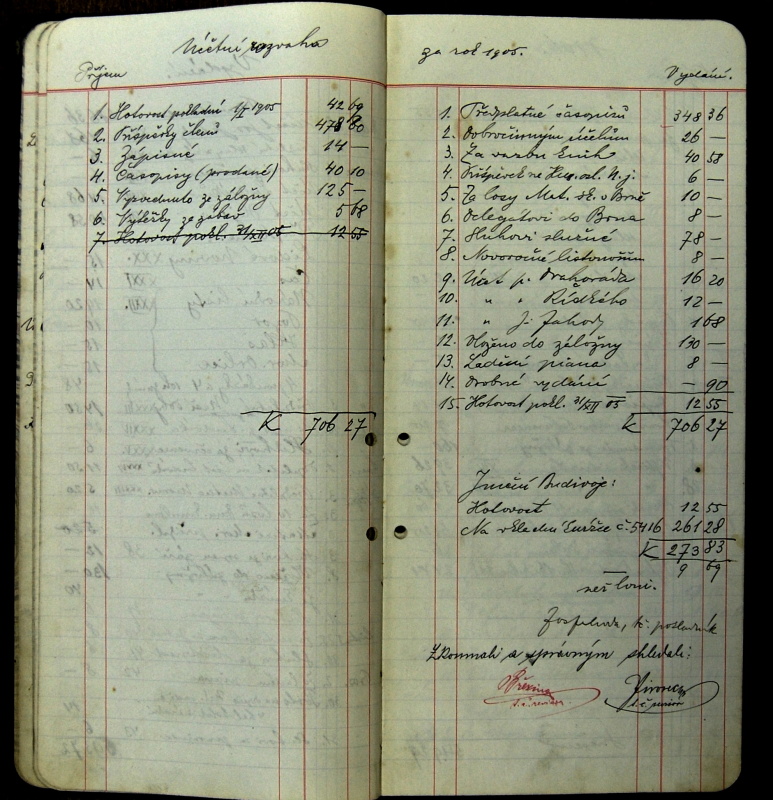 Účetní rozvaha
Příjem
1. Hotovost pokladní 1/I 1905 42 69
2. Příspěvky členů 478 80
3. Zápisné 14 —
4. Časopisy (prodané) 40 10
5. Vyzvednuto ze záložny 125 —
6. Výtěžky ze zábav 5 68
7. Hotovost pokl. 31/XII 05 12 55
K 706 27
za rok 1905.
Vydání.
1. Předplatné časopisů 348 36
2. Dobročinným účelům 26 —
3. Za vazbu knih 40 58
4. Příspěvek 6 —
5. Za losy Mat. šk. v Brně 10 —
6. Delegátovi do Brna 8 —
7. Sluhovi služné 78 —
8. Novoročné listonošům 8 —
9. Účet p. Drahoráda 16 20
10. " " Řídkého 12 —
11. " J. Jahody 1 68
12. Vloženo do záložny 130 —
13. Ladění piana 8 —
14. Drobné vydání — 90
15. Hotovost pokl. 31/XII 05 12 55
K 706 27
Jmění Budivoje:
Hotovost 12 55
Na vkladní knížce č. 5416 261 28
K 273 83
9 69
než loni.
t.č. pokladník
Zkoumali a správným shledali:
Březina
t.č. revisor
t.č. revisor